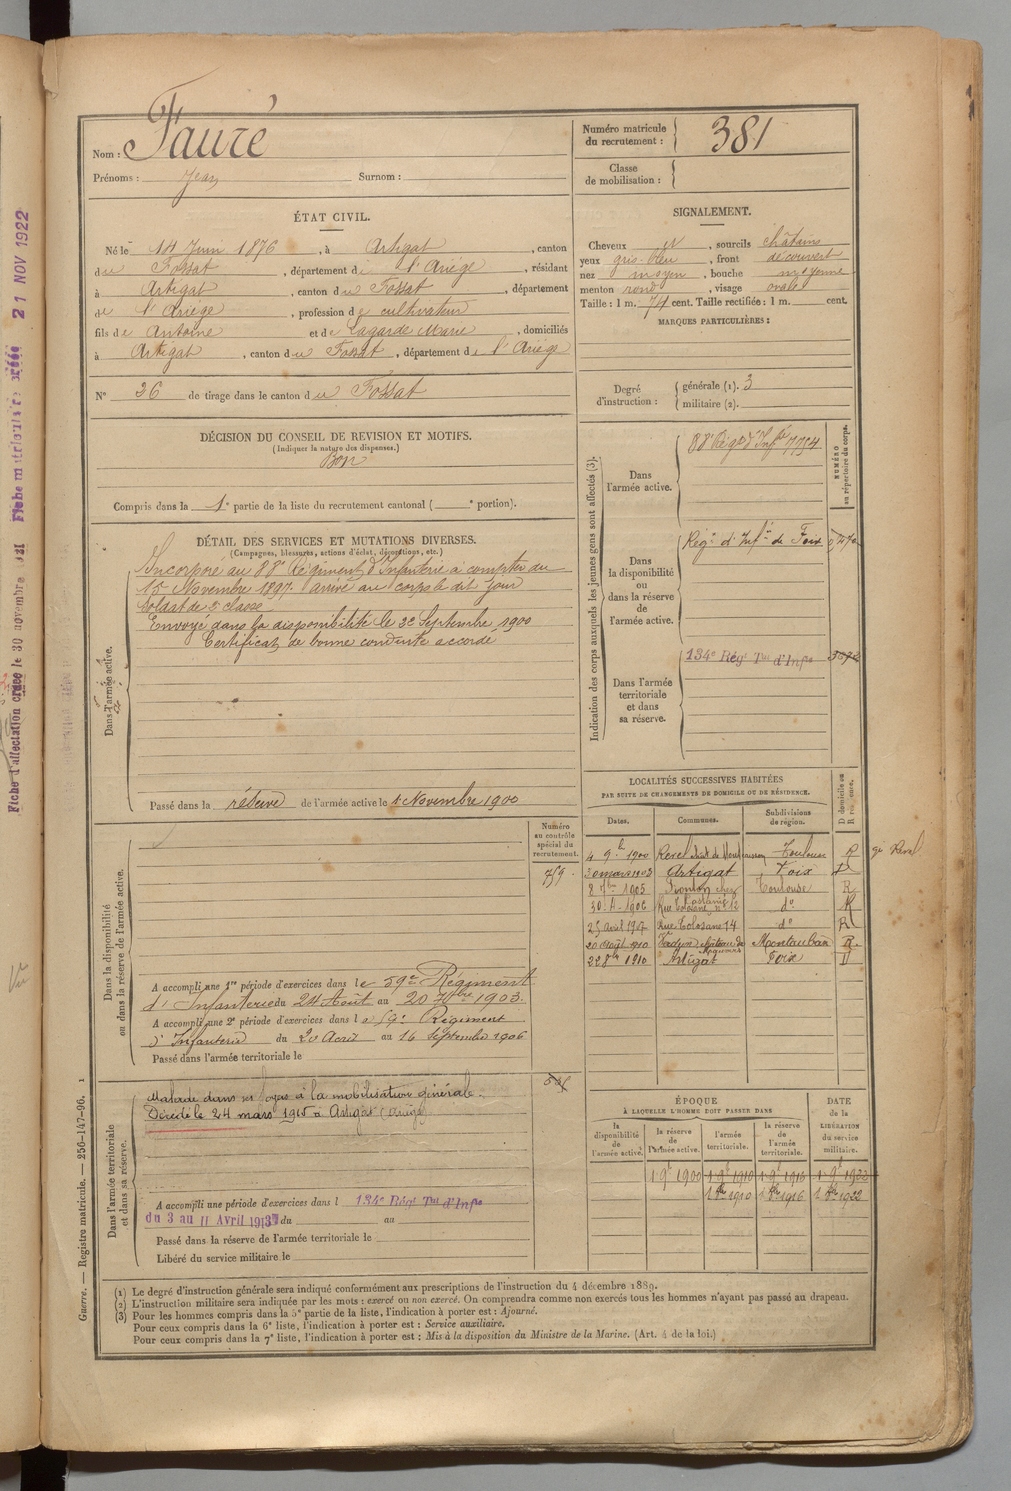 Nom : Fauré
Prénoms : Jean Surnom :
Numéro matricule du recrutement : 381
Classe de mobilisation :
ÉTAT CIVIL.
Né le 14 Juin 1876, à Artigat, canton
du Fossat, département de l'Ariège, résidant
à Artigat, canton du Fossat, département
de l'Ariège, profession de cultivateur
fils de Antoine et de Lagarde Marie, domiciliés
à Artigat, canton du Fossat, département de l'Ariège
N° 26 de tirage dans le canton du Fossat
SIGNALEMENT.
Cheveux et, sourcils châtains
yeux gris-bleu, front découvert
nez moyen, bouche moyenne
menton rond, visage ovale
Taille : 1 m. 74 cent. Taille rectifiée : 1 m. cent.
MARQUES PARTICULIÈRES :
Degré d'instruction : générale (1). 3
militaire (2).
DÉCISION DU CONSEIL DE REVISION ET MOTIFS.
(Indiquer la nature des dispenses.)
Bon
Compris dans la 1e partie de la liste du recrutement cantonal ( e portion).
DÉTAIL DES SERVICES ET MUTATIONS DIVERSES.
(Campagnes, blessures, actions d'éclat, décorations, etc.)
Dans l'armée active.
Incorporé au 88e Régiment d'Infanterie à compter du
15 Novembre 1897. arrivé au corps le dit jour
soldat de 2e classe
Envoyé dans la disponibilité le 22 Septembre 1900
Certificat de bonne conduite accordé
Passé dans la réserve de l'armée active le 1er Novembre 1900
Indication des corps auxquels les jeunes gens sont affectés (3).
NUMÉRO au répertoire du corps.
Dans l'armée active.
88e Régt d'Infie 7754
Dans la disponibilité ou dans la réserve de l'armée active.
Régt d'Infie de Foix
Dans l'armée territoriale et dans sa réserve.
134e Régt Tal d'Infie
LOCALITÉS SUCCESSIVES HABITÉES
PAR SUITE DE CHANGEMENTS DE DOMICILE OU DE RÉSIDENCE.
Dates. Communes. Subdivisions de région. D domicile ou R résidence.
4 9bre 1900 Revel Toulouse R
30 mars 1903 Artigat Foix D
8 7bre 1905 Toulouse R
30-4-1906 Rue n° 12 do R
25 avril 1907 Rue Tolosane 14 do R
20 août 1910 Montauban R
22 8bre 1910 Artigat Foix D
Dans la disponibilité ou dans la réserve de l'armée active.
Numéro au contrôle spécial du recrutement.
759
A accompli une 1re période d'exercices dans le 59e Régiment
d'Infanterie du 24 Août au 20 7bre 1903.
A accompli une 2e période d'exercices dans le 59e Régiment
d'Infanterie du 20 Août au 16 Septembre 1906
Passé dans l'armée territoriale le
Dans l'armée territoriale et dans sa réserve.
Malade dans ses foyers à la mobilisation générale.
Décédé le 24 mars 1915 à Artigat (Ariège)
A accompli une période d'exercices dans l 134e Régt Tal d'Infie
du 3 au 11 Avril 1913 du au
Passé dans la réserve de l'armée territoriale le
Libéré du service militaire le
ÉPOQUE
À LAQUELLE L'HOMME DOIT PASSER DANS
DATE de la LIBÉRATION du service militaire.
la disponibilité de l'armée active. la réserve de l'armée active. l'armée territoriale. la réserve de l'armée territoriale.
1 9bre 1900 1 9bre 1910 1 9bre 1916 1 9bre 1922
1 8bre 1910 1 8bre 1916 1 8bre 1922
(1) Le degré d'instruction générale sera indiqué conformément aux prescriptions de l'instruction du 4 décembre 1889.
(2) L'instruction militaire sera indiquée par les mots : exercé ou non exercé. On comprendra comme non exercés tous les hommes n'ayant pas passé au drapeau.
(3) Pour les hommes compris dans la 5e partie de la liste, l'indication à porter est : Ajourné.
Pour ceux compris dans la 6e liste, l'indication à porter est : Service auxiliaire.
Pour ceux compris dans la 7e liste, l'indication à porter est : Mis à la disposition du Ministre de la Marine. (Art. 4 de la loi.)
Guerre. — Registre matricule. — 256-147-96. 1
Fiche d'affectation créée le 30 novembre 1921 Fiche matricule créée 21 NOV 1922
Vu